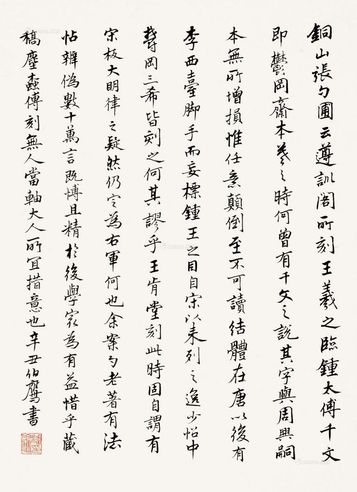 銅山張勺圃云遵訓閣所刻王羲之臨鍾太傅千文
即鬱岡齋本羲之時何曾有千文之說其字與周興嗣
本無所增損惟任意顛倒至不可讀結體在唐以後有
李西臺脚手而妄標鍾王之目自宋以來列之逸少帖中
鬱岡三希皆刻之何其謬乎王肯堂刻此時固自謂有
宋板大明律之疑然仍定為右軍何也余案勺老著有法
帖辨偽數十萬言既博且精於後學家為有益惜乎藏
稿塵蠹傅刻無人當軸大人所宜措意也辛丑伯鷹書